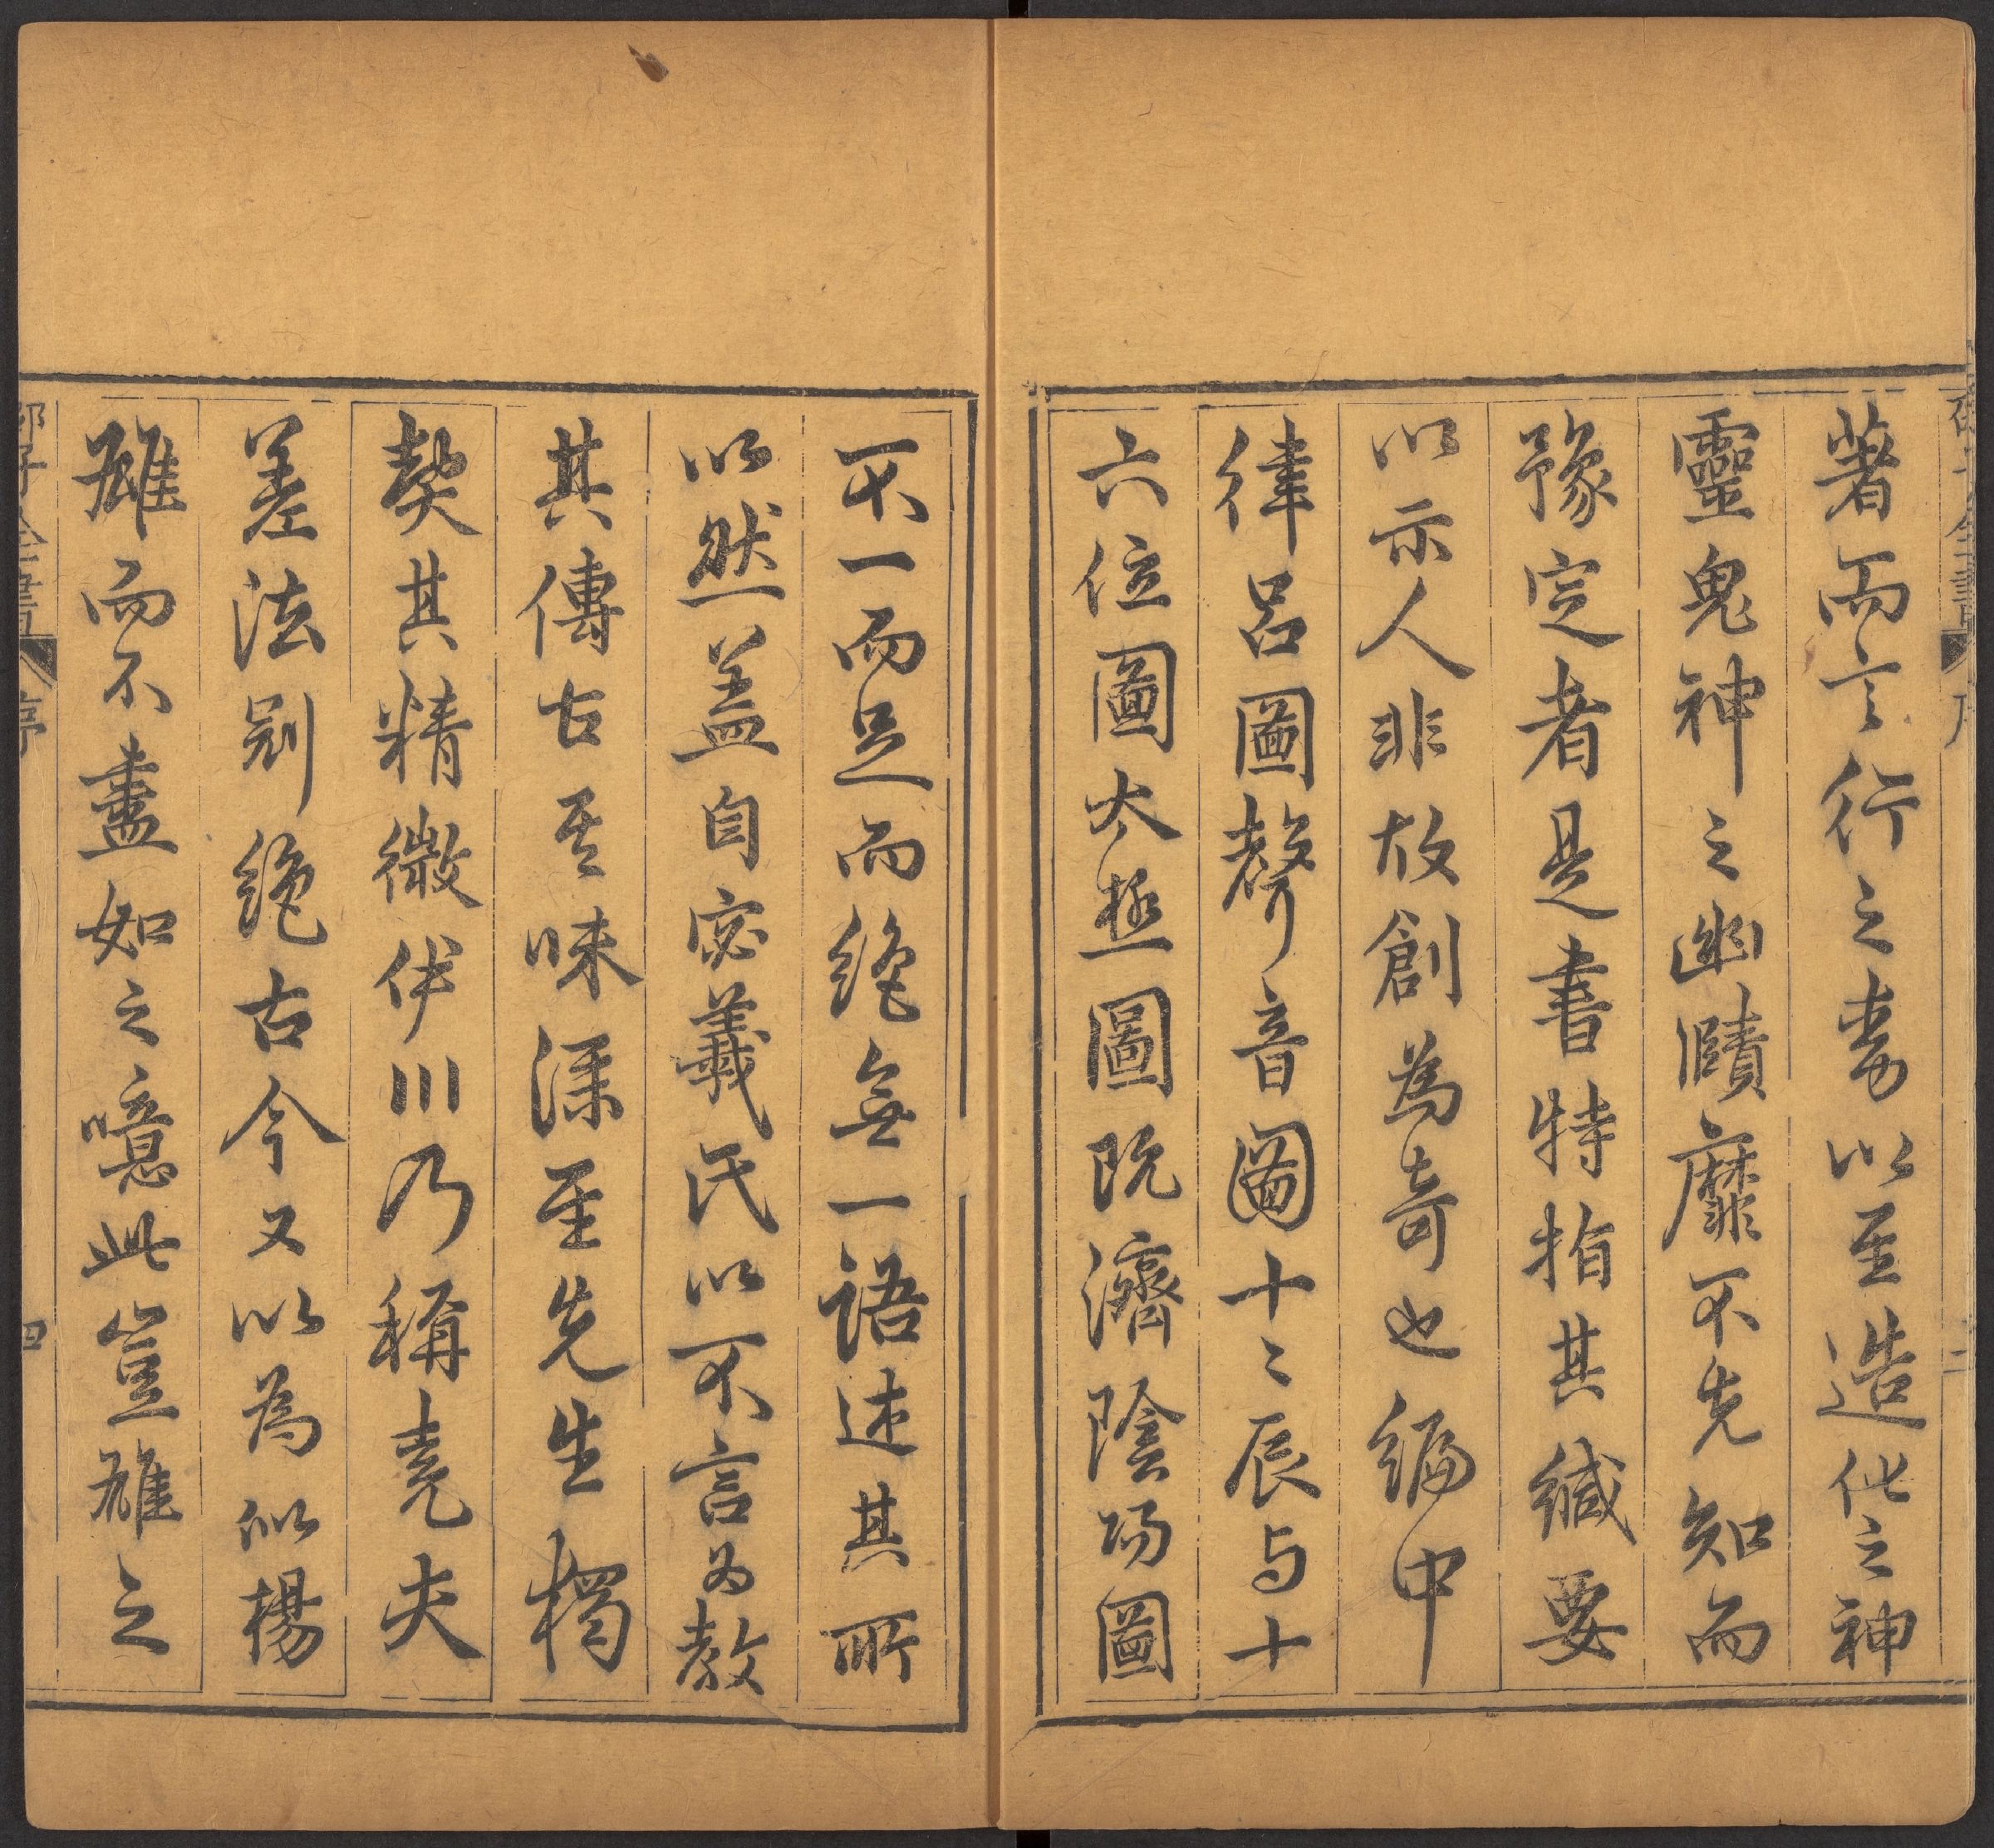 著而言行之書以至造化之神
靈鬼神之幽賾靡不先知而
豫定者是書特指其緘要
以示人非故創為奇也編中
律呂圖聲音圖十二辰与十
六位圖太極圖既濟陰陽圖
不一而足而絶無一語述其所
以然盖自宓羲氏以不言為教
其傳古其味深至先生獨
契其精微伊川乃稱堯夫
差法别絶古今又以為似楊
雄而不盡如之噫此豈雄之
邵子全書 序 四